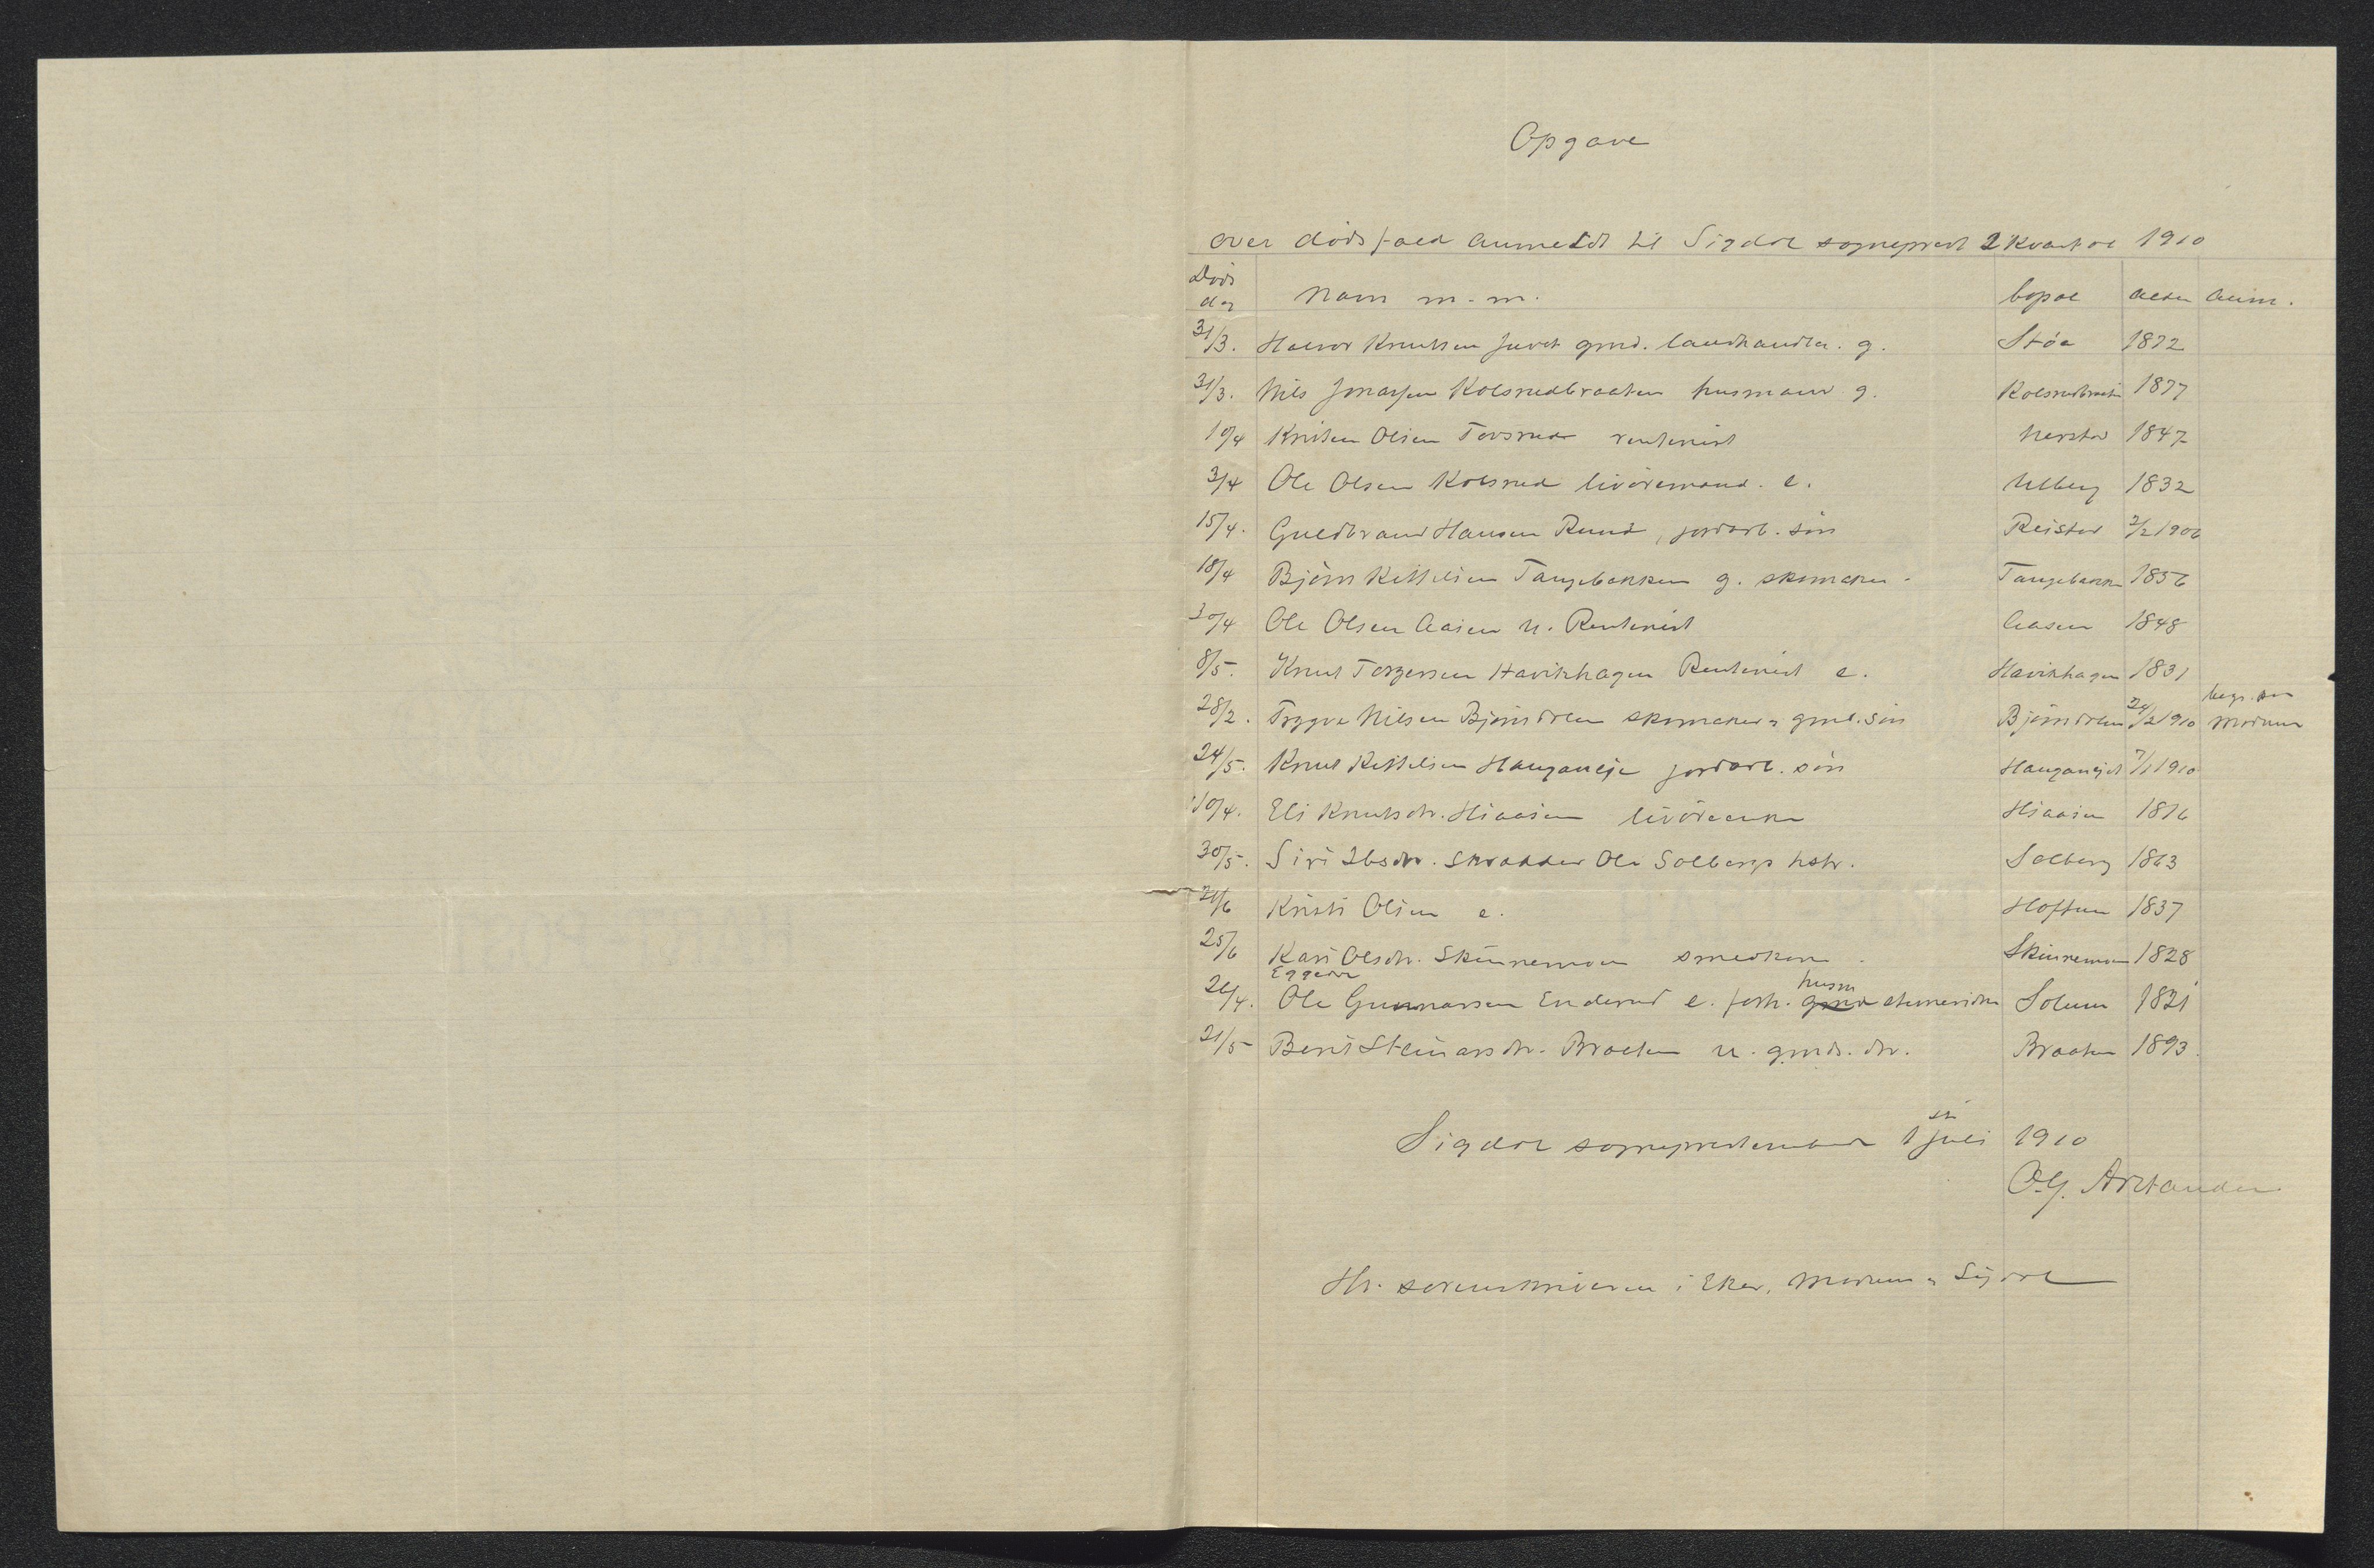 Opgave
over dødsfald anmeldt til Sigdal sogneprest 2 kvartal 1910
Døds dag Navn m.m. bopæl alder anm.
31/3. Halvor Knutsen Juvet grnd. landhandler. g. Støa 1872
31/3. Nils Jonassen Kolsrudbraaten husmand g. Kolsrudbraaten 1877
10/4 Kristen Olsen Tovsrud rentenist Nerstad 1847
3/4 Ole Olsen Kolsrud livöremand. e. Ulberg 1832
15/4. Guldbrand Hansen Rund, jordarb. sön Reistad 2/2 1906
18/4 Björn Kittilsen Tangebakken g. skomaker. Tangebakken 1856
30/4 Ole Olsen Aasen u. Rentenist Aasen 1848
8/5. Knut Torgersen Havikhagen Rentenist e. Havikhagen 1831
28/2. Trygve Nilsen Björndalen skomaker & grnd. sön Björndalen 24/2 1910 begr. paa Modum
24/5. Knut Kittilsen Hauganeje jordarb. sön Hauganejet 7/1 1910
10/4. Eli Knutsdtr. Hiaasen livöreenke Hiaasen 1816
30/5. Siri Ibsdtr. Skrædder Ole Solbergs hstr. Solberg 1863
Kristi Olsen e. Hoftun 1837
25/6 Kari Olsdtr. Skinnemoen smedkone. Skinnemoen 1828
Eggedal
26/4. Ole Gunnarsen Enderud e. forh. husm Solum 1821
21/5 Berit Steinarsdtr. Braaten u. grnds. dtr. Braaten 1893.
Sigdal sogneprestembede 1st juli 1910
O.G. Arctander
Hr. sorenskriveren i Eker, Modum & Sigdal